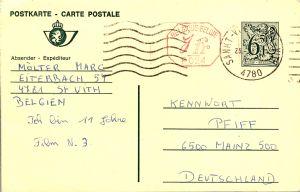 POSTKARTE - CARTE POSTALE
Absender - Expéditeur
MOLTER MARC
EITERBACH 57
4781 ST VITH
BELGIEN
Ich bin 11 Jahre
Film N. 3.
4780
KENNWORT
PFIFF
6500 MAINZ 500
DEUTSCHLAND